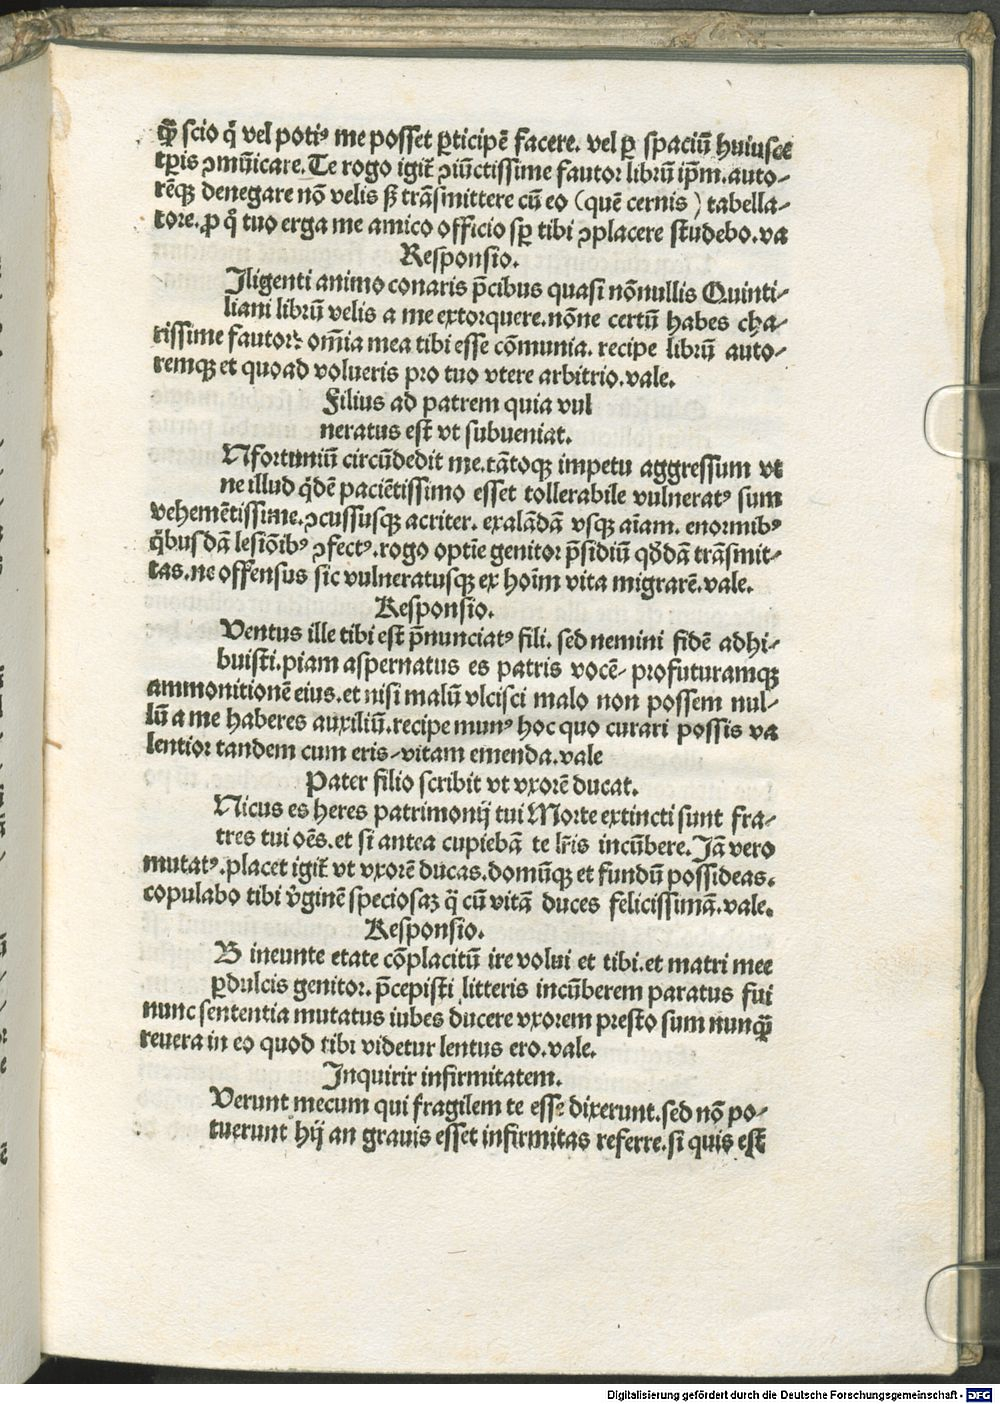 qꝫ scio q̊ vel potiꝰ me posset ꝑticipē facere. vel ꝑ spaciū huiusce
tꝑis ꝯmūicare. Te rogo igit̄ ꝯiūctissime fautor librū ip̄m. auto-
rēqꝫ denegare nō velis sꝫ trāsmittere cū eo (quē cernis) tabella-
tore. ꝓ q̊ tuo erga me amico officio sꝑ tibi ꝯplacere studebo. va
Responsio.
Iligenti animo conaris p̄cibus quasi nōnullis Quinti-
liani librū velis a me extorquere. nōne certū habes cha-
rissime fautor: om̄ia mea tibi esse cōmunia. recipe librū auto-
remqꝫ et quoad volueris pro tuo vtere arbitrio. vale.
Filius ad patrem quia vul
neratus est vt subueniat.
Nfortuniū circūdedit me. tātoqꝫ impetu aggressum vt
ne illud q̇dē paciētissimo esset tollerabile vulneratꝰ sum
vehemētissime. ꝯcussusqꝫ acriter. exalādā vsqꝫ aīam. enormibꝰ
q̇busdā lesiōibꝰ ꝯfectꝰ. rogo optīe genitor p̄sidiū qḋdā trāsmit-
tas. ne offensus sic vulneratusqꝫ ex hoīm vita migrarē. vale.
Responsio.
Ventus ille tibi est p̄nunciatꝰ fili. sed nemini fidē adhi-
buisti. piam aspernatus es patris vocē- profuturamqꝫ
ammonitionē eius. et nisi malū vlcisci malo non possem nul-
lū a me haberes auxiliū. recipe munꝰ hoc quo curari possis va
lentior tandem cum eris-vitam emenda. vale
Pater filio scribit vt vxorē ducat.
Nicus es heres patrimonij tui Morte extincti sunt fra-
tres tui oēs. et si antea cupiebā te lr̄is incūbere. Jā vero
mutatꝰ. placet igit̄ vt vxorē ducas. domūqꝫ et fundū possideas.
copulabo tibi v̇ginē speciosaꝫ q̄ cū vitā duces felicissimā. vale.
Responsio.
B ineunte etate cōplacitū ire volui et tibi. et matri mee
ꝑdulcis genitor. p̄cepisti litteris incūberem paratus fui
nunc sententia mutatus iubes ducere vxorem presto sum nunqꝫ̄
reuera in eo quod tibi videtur lentus ero. vale.
Inquirir infirmitatem.
Verunt mecum qui fragilem te esse dixerunt. sed nō po-
tuerunt hij an grauis esset infirmitas referre. si quis est
Digitalisierung gefördert durch die Deutsche Forschungsgemeinschaft - DFG